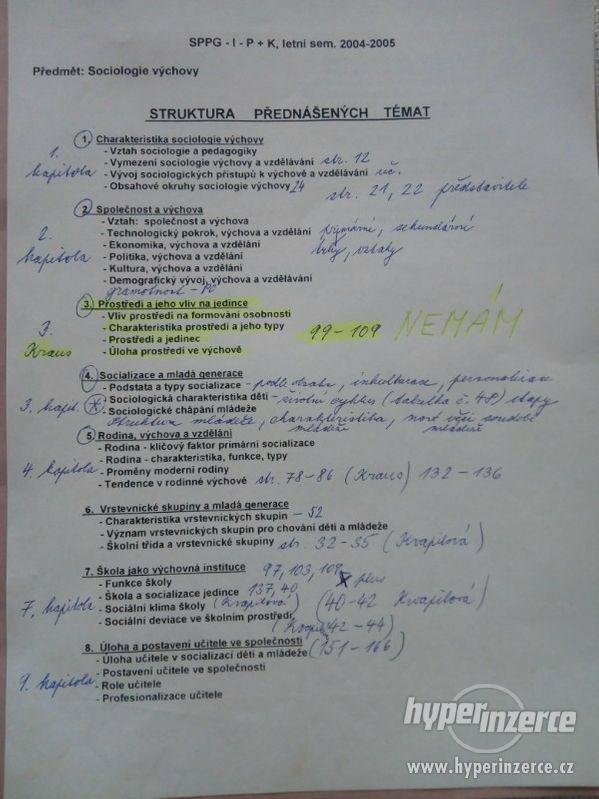 SPPG - I - P + K, letní sem. 2004-2005
Předmět: Sociologie výchovy
STRUKTURA PŘEDNÁŠENÝCH TÉMAT
1. Charakteristika sociologie výchovy
1. - Vztah sociologie a pedagogiky
- Vymezení sociologie výchovy a vzdělávání str. 12
kapitola - Vývoj sociologických přístupů k výchově a vzdělávání uč.
- Obsahové okruhy sociologie výchovy 24 str. 21, 22 představitele
2. Společnost a výchova
- Vztah: společnost a výchova
2. - Technologický pokrok, výchova a vzdělání primární, sekundární
- Ekonomika, výchova a vzdělání vztahy
kapitola - Politika, výchova a vzdělání
- Kultura, výchova a vzdělání
- Demografický vývoj, výchova a vzdělávání
gramotnost - PC
3. Prostředí a jeho vliv na jedince
- Vliv prostředí na formování osobnosti
3. - Charakteristika prostředí a jeho typy 99-109 NEMÁM
- Prostředí a jedinec
Kraus - Úloha prostředí ve výchově
4. Socializace a mladá generace
- Podstata a typy socializace - podle obsahu, inkulturace, personalizace
3. kapit. - Sociologická charakteristika dětí - životní cyklus (tabulka č. 48) etapy
- Sociologické chápání mládeže
struktura mládeže, charakteristika,
mládeže mládeže
5. Rodina, výchova a vzdělání
- Rodina - klíčový faktor primární socializace
- Rodina - charakteristika, funkce, typy
4. kapitola - Proměny moderní rodiny
- Tendence v rodinné výchově str. 78-86 (Kraus) 132-136
6. Vrstevnické skupiny a mladá generace
- Charakteristika vrstevnických skupin - 52
- Význam vrstevnických skupin pro chování dětí a mládeže
- Školní třída a vrstevnické skupiny str. 32-35 (Kvapilová)
7. Škola jako výchovná instituce 97, 103, 109
- Funkce školy plus
- Škola a socializace jedince 137, 40
7. kapitola - Sociální klima školy (Kvapilová) (40-42 Kvapilová)
- Sociální deviace ve školním prostředí
42-44)
8. Úloha a postavení učitele ve společnosti
- Úloha učitele v socializaci dětí a mládeže (151-166)
9. kapitola - Postavení učitele ve společnosti
- Role učitele
- Profesionalizace učitele
hyperinzerce
www.hyperinzerce.cz